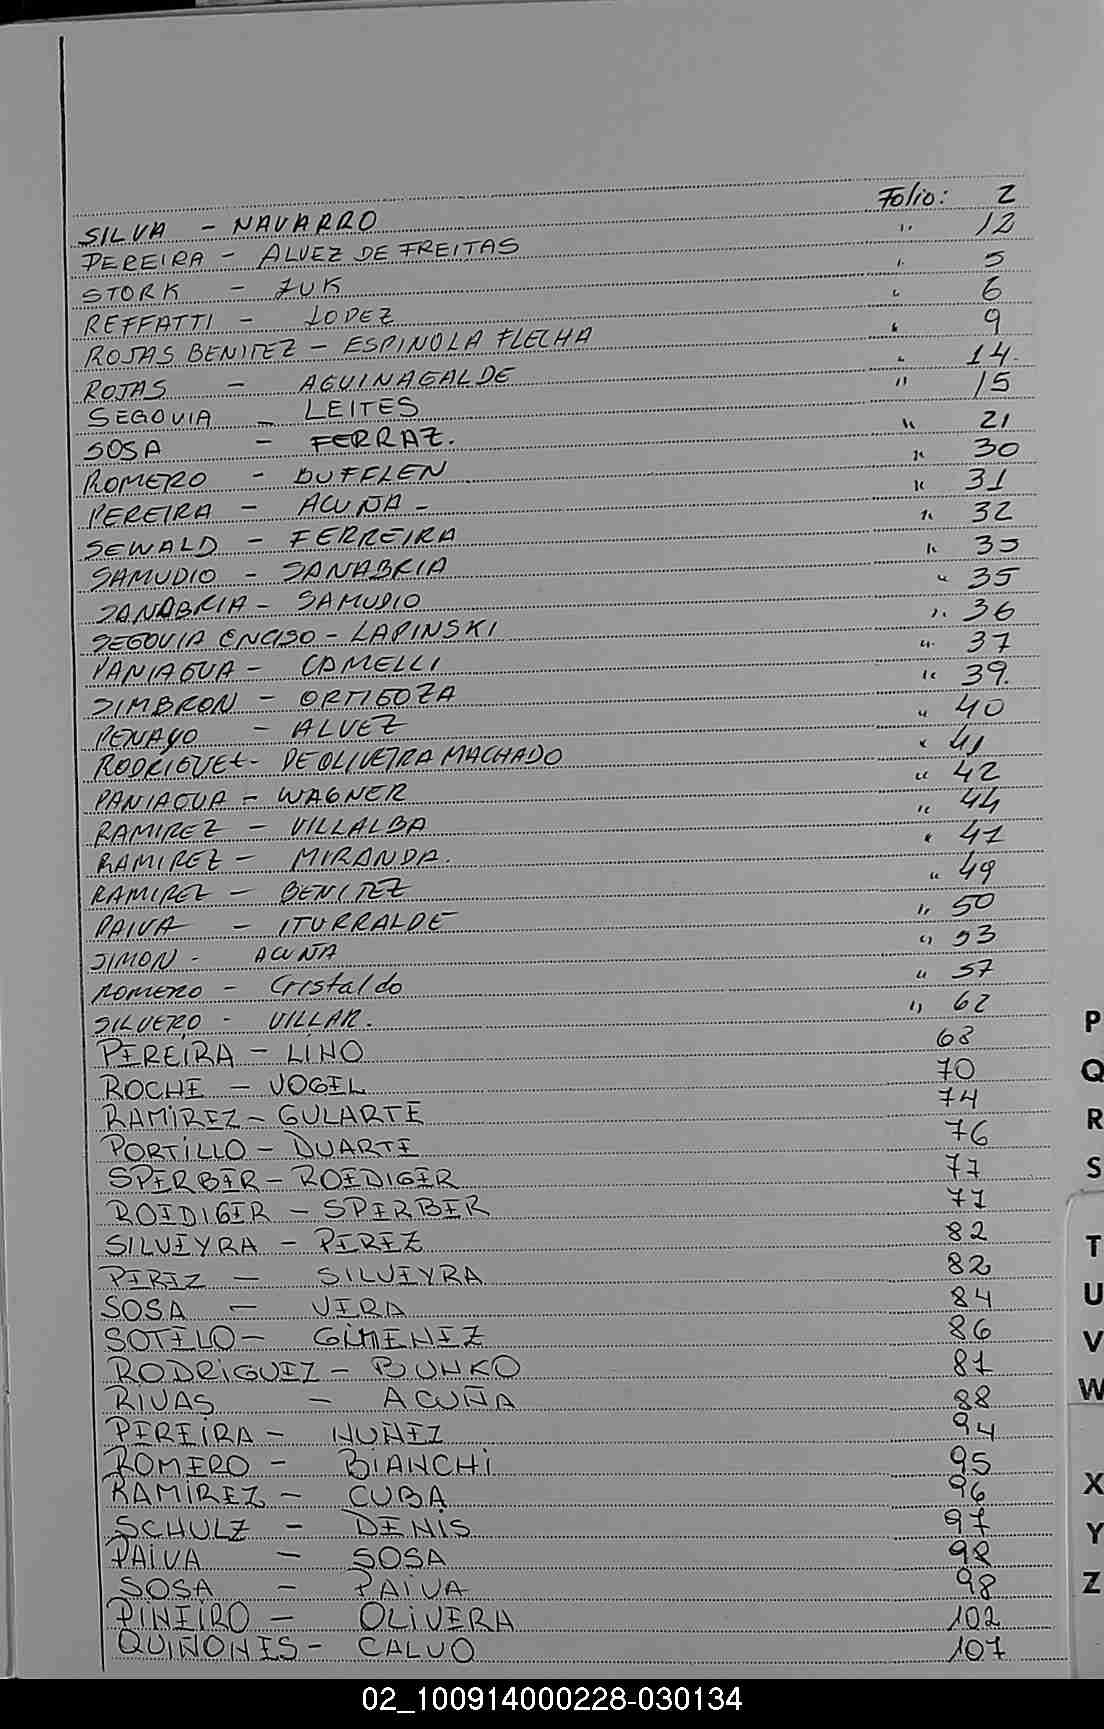 SILVA - NAVARRO Folio: 2
PEREIRA - ALVEZ DE FREITAS " 12
STORK - ZUK " 5
REFFATTI - LOPEZ " 6
ROJAS BENITEZ - ESPINOLA FLECHA " 9
ROJAS - AGUINAGALDE " 14
SEGOVIA - LEITES " 15
SOSA - FERRAZ. " 21
ROMERO - DUFFLEN " 30
PEREIRA - ACUÑA - " 31
SEWALD - FERREIRA " 32
SAMUDIO - SANABRIA " 35
SANABRIA - SAMUDIO " 35
SEGOVIA ENCISO - LAPINSKI " 36
PANIAGUA - CAMELLI " 37
SIMBRON - ORTIGOZA " 39.
PENAYO - ALVEZ " 40
RODRIGUEZ - DE OLIVEIRA MACHADO " 41
PANIAGUA - WAGNER " 42
RAMIREZ - VILLALBA " 44
RAMIREZ - MIRANDA. " 47
RAMIREZ - BENITEZ " 49
PAIVA - ITURRALDE " 50
SIMON - ACUÑA " 53
ROMERO - Cristaldo " 57
SILVERO - VILLAR. " 62
PEREIRA - LINO 68
ROCHE - VOGEL 70
RAMIREZ - GULARTE 74
PORTILLO - DUARTE 76
SPERBER - ROEDIGER 77
ROEDIGER - SPERBER 77
SILVEYRA - PEREZ 82
PEREZ - SILVEYRA 82
SOSA - VERA 84
SOTELO - GIMENEZ 86
RODRIGUEZ - BUNKO 87
RIVAS - ACUÑA 88
PEREIRA - NUÑEZ 94
ROMERO - BIANCHI 95
RAMIREZ - CUBA 96
SCHULZ - DENIS 97
PAIVA - SOSA 98
SOSA - PAIVA 98
PINEIRO - OLIVERA 102
QUIÑONES - CALVO 107
P
Q
R
S
T
U
V
W
X
Y
Z
02_100914000228-030134